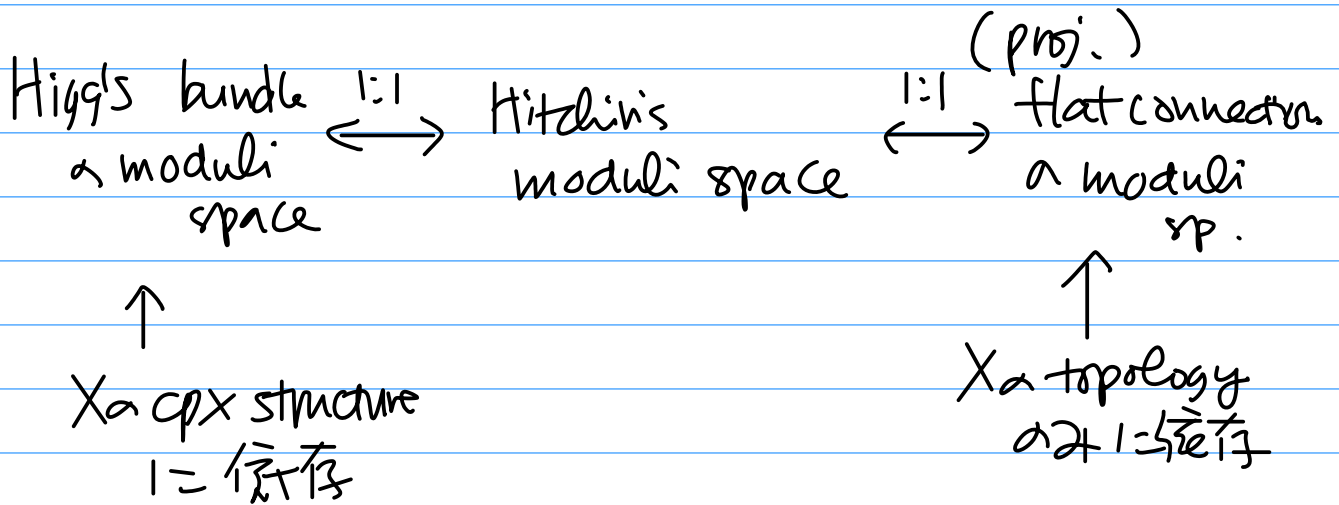 Higgs bundle
の moduli
space
1:1
Hitchin's
moduli space
1:1
(proj.)
flat connection
の moduli
sp.
Xの cpx structure
に依存
Xの topology
のみに依存